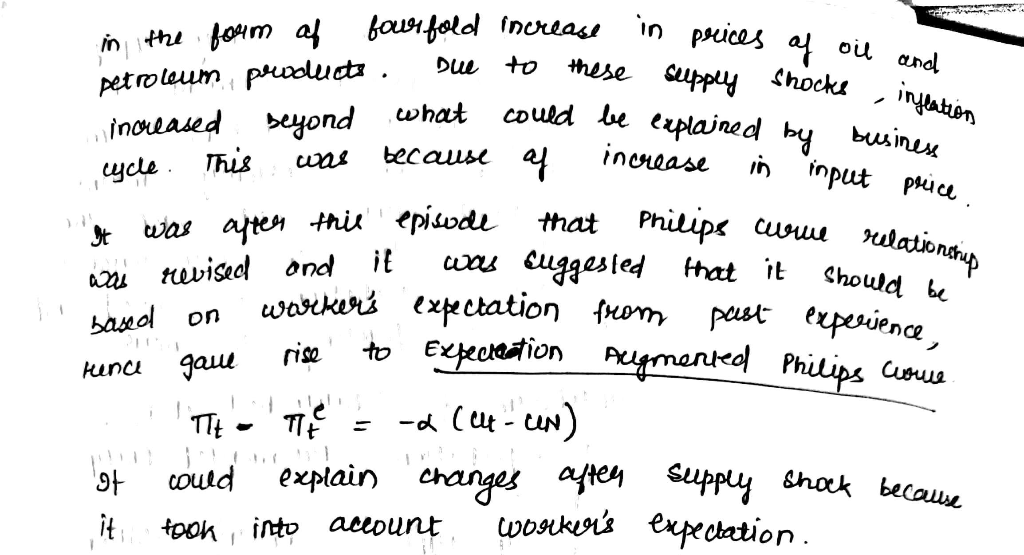 in the form of fourfold increase in prices of oil and
petroleum products. Due to these supply shocks, inflation
increased beyond what could be explained by business
cycle. This was because of increase in input price.
It was after this episode that Philips curve relationship
was revised and it was suggested that it should be
based on worker's expectation from past experience,
Hence gave rise to Expectation Augmented Philips Curve
πt - πt^e = -α (ut - uN)
It could explain changes after supply shock because
it took into account worker's expectation.